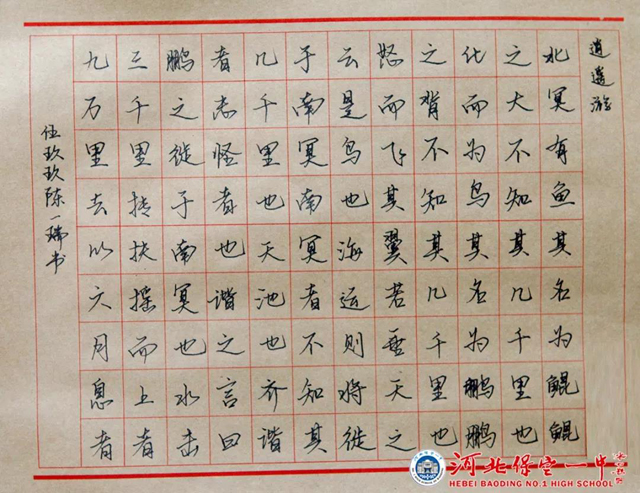 逍遥游
北冥有鱼其名为鲲鲲
之大不知其几千里也
化而为鸟其名为鹏鹏
之背不知其几千里也
怒而飞其翼若垂天之
云是鸟也海运则将徙
于南冥南冥者不知其
几千里也天池也齐谐
者志怪者也谐之言曰
鹏之徙于南冥也水击
三千里抟扶摇而上者
九万里去以六月息者
伍玖玖陈一瑞书
河北保定一中
HEBEI BAODING NO.1 HIGH SCHOOL